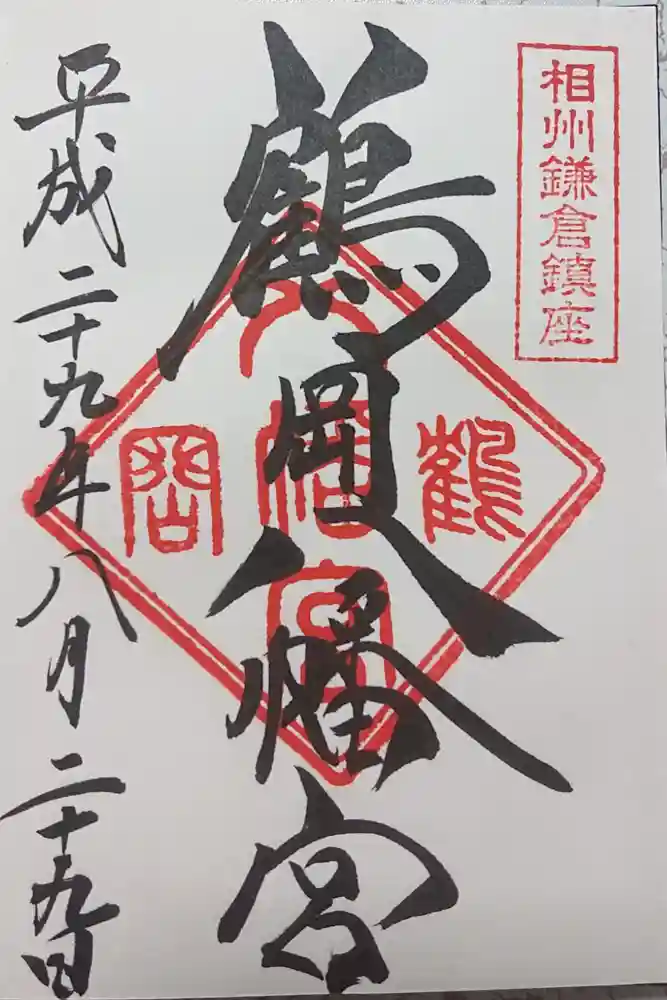 相州鎌倉鎮座
鶴岡八幡宮
鶴岡八幡宮
平成二十九年八月二十九日